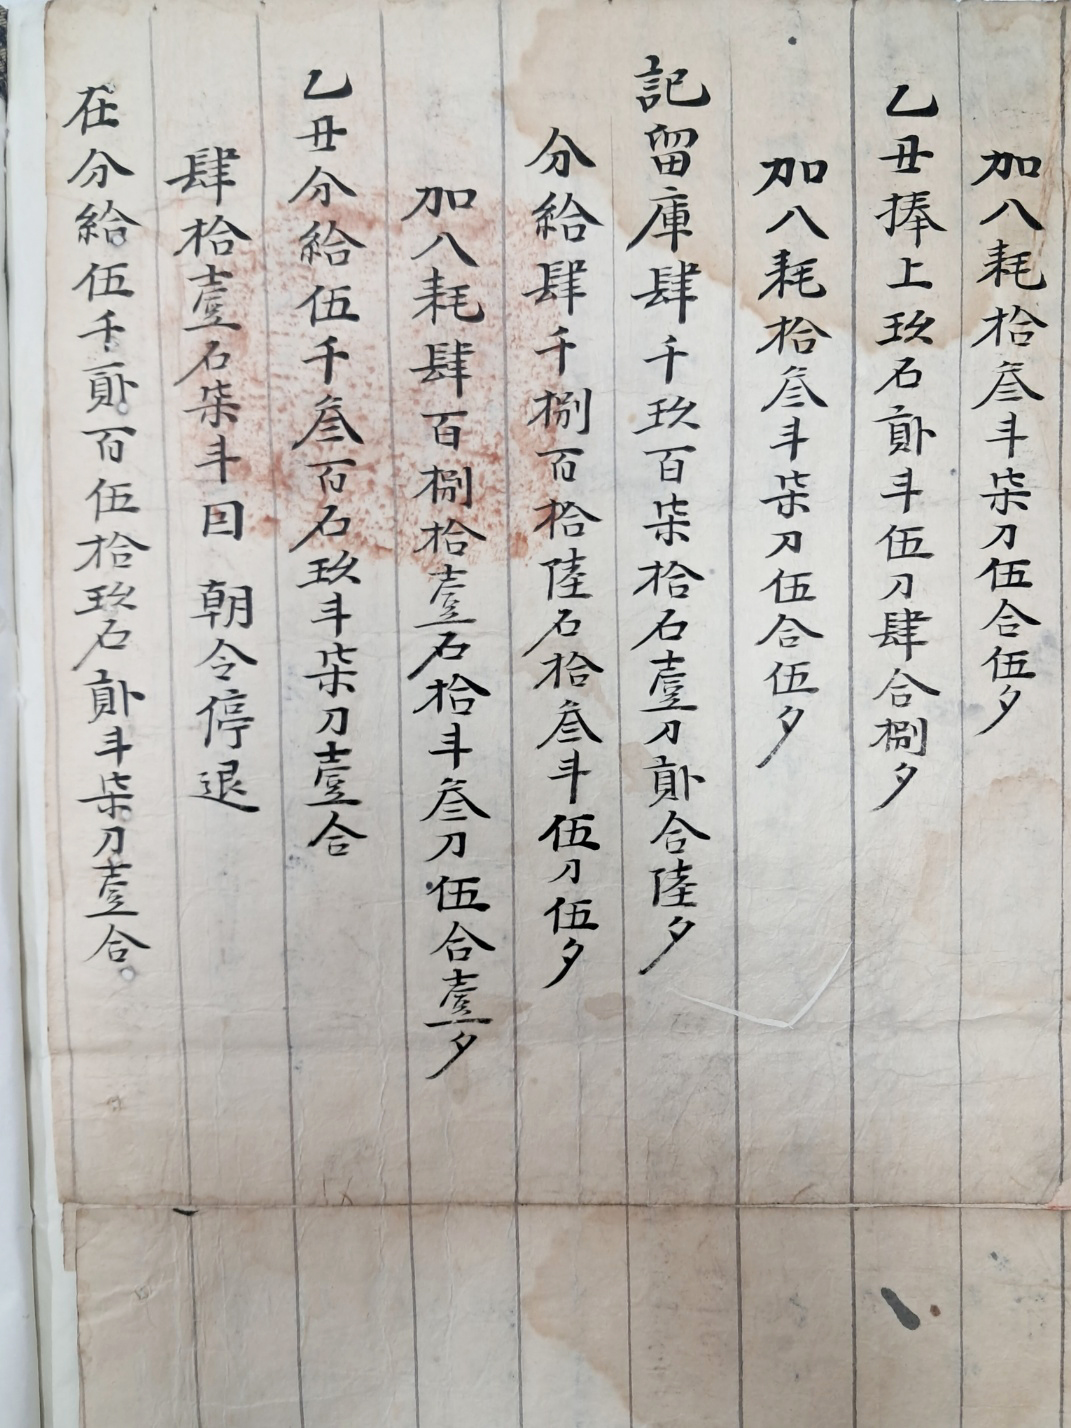 加八耗拾叁斗柒刀伍合伍夕
乙丑捧上玖石貮斗伍刀肆合捌夕
加八耗拾叁斗柒刀伍合伍夕
記留庫肆千玖百柒拾石壹刀貮合陸夕
分給肆千捌百拾陸石拾叁斗伍刀伍夕
加八耗肆百捌拾壹石拾斗叁刀伍合壹夕
乙丑分給伍千叁百石玖斗柒刀壹合
肆拾壹石柒斗囙 朝令停退
在分給伍千貮百伍拾玖石貮斗柒刀壹合